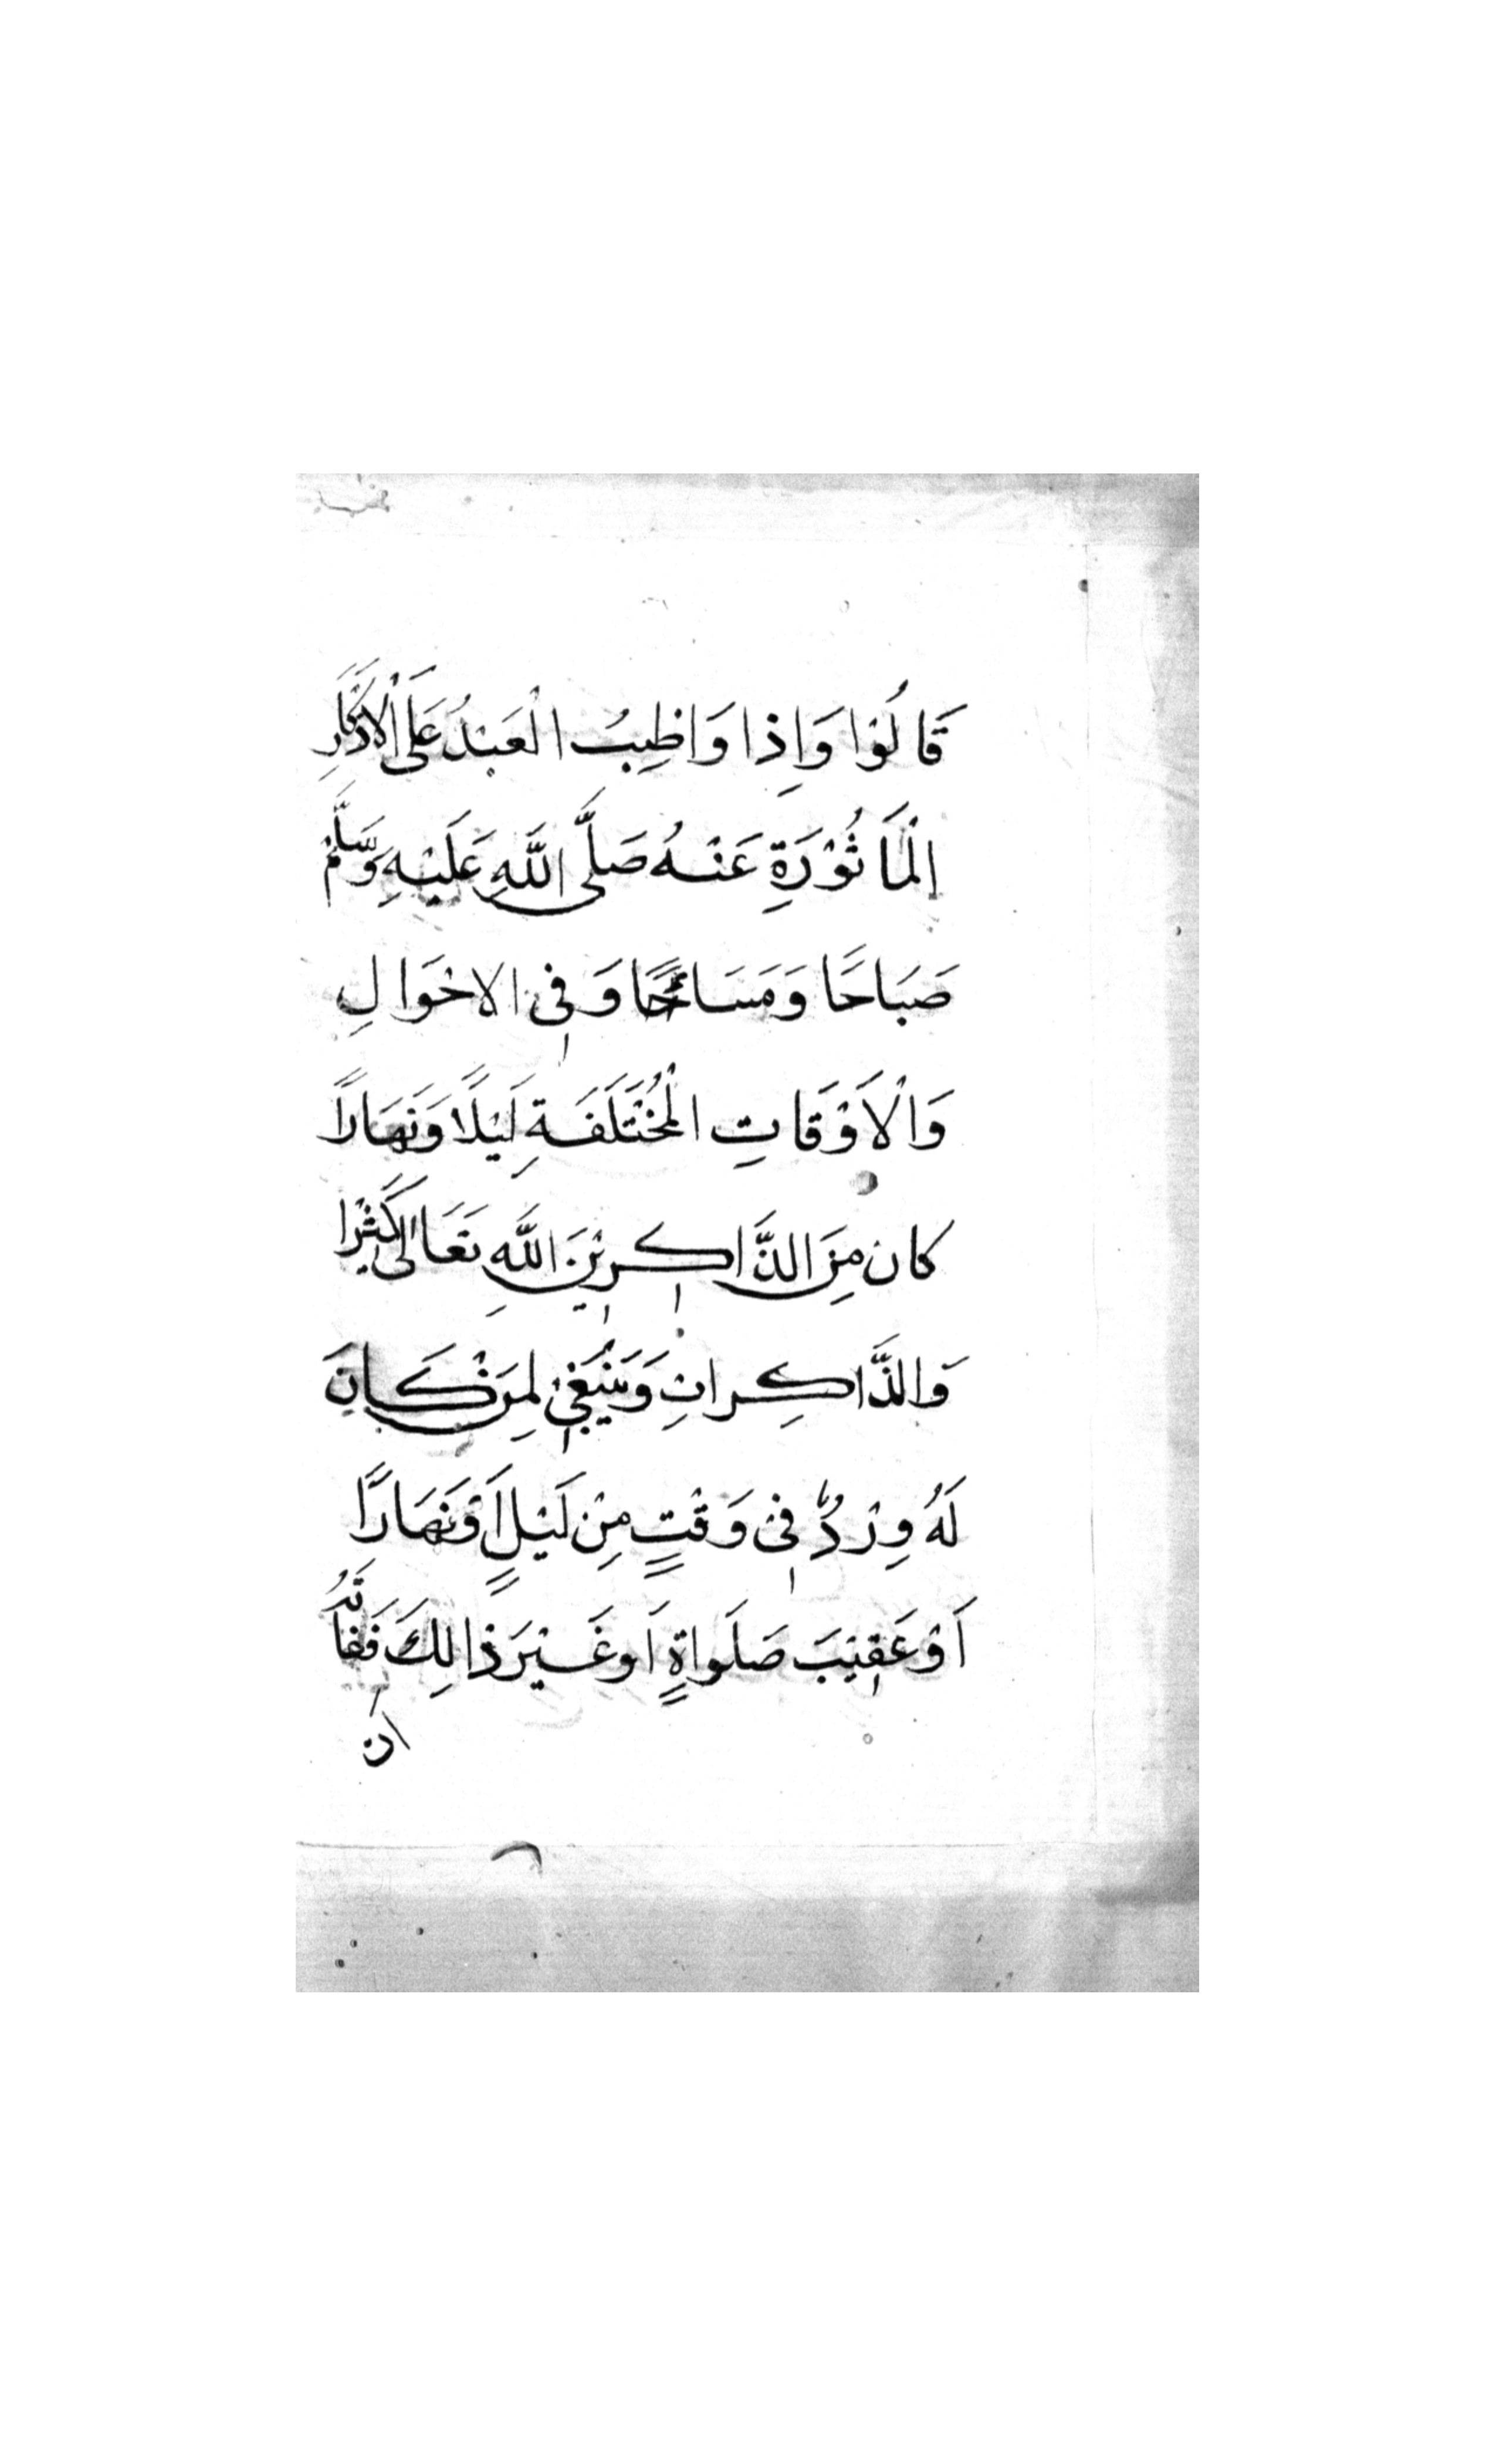 قَالُوْا وَاِذَا وَاظِبُ الْعَبْدُ عَلَى الْاَذْكَارِ
اِلْمَاَثُوْرَةِ عَنْهُ صَلَّى اللَّهِ عَلَيْهِ وَسَلَّمْ
صَبَاحًا وَمَسَاحًا وَفِى الاحْوَالِ
وَالْاَوْقَاتِ الْمُخْتَلَفَةِ لَيْلًا وَنَهَارًا
كان مِنَ الذَّاكِرِيْنَ اللَّهِ تَعَالَى كَثِيْرًا
وَالذَّاكِراتِ وَيَنْبَغِىْ لِمَنْ كَانَ
لَهُ وِرْدٌ فِىْ وَقْتٍ مِنْ لَيْلٍ اَوْ نَهَارًا
اَوْ عَقِيْبَ صَلَواةٍ اَو غَيْرَ ذالِكَ فَفَاتَهُ
ان